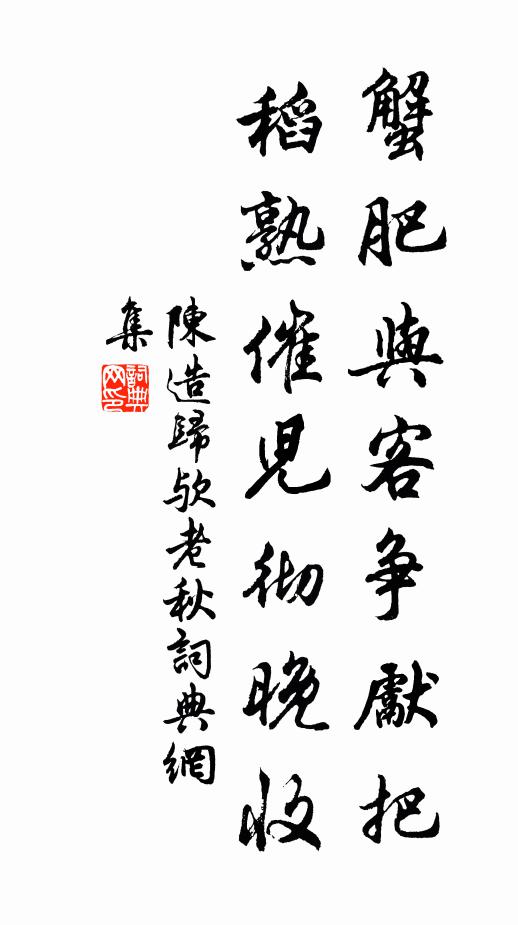 蟹肥與客争獻把
稻熟催兒彻晚收
陳造歸歟老秋詞典網
集
詞典网印